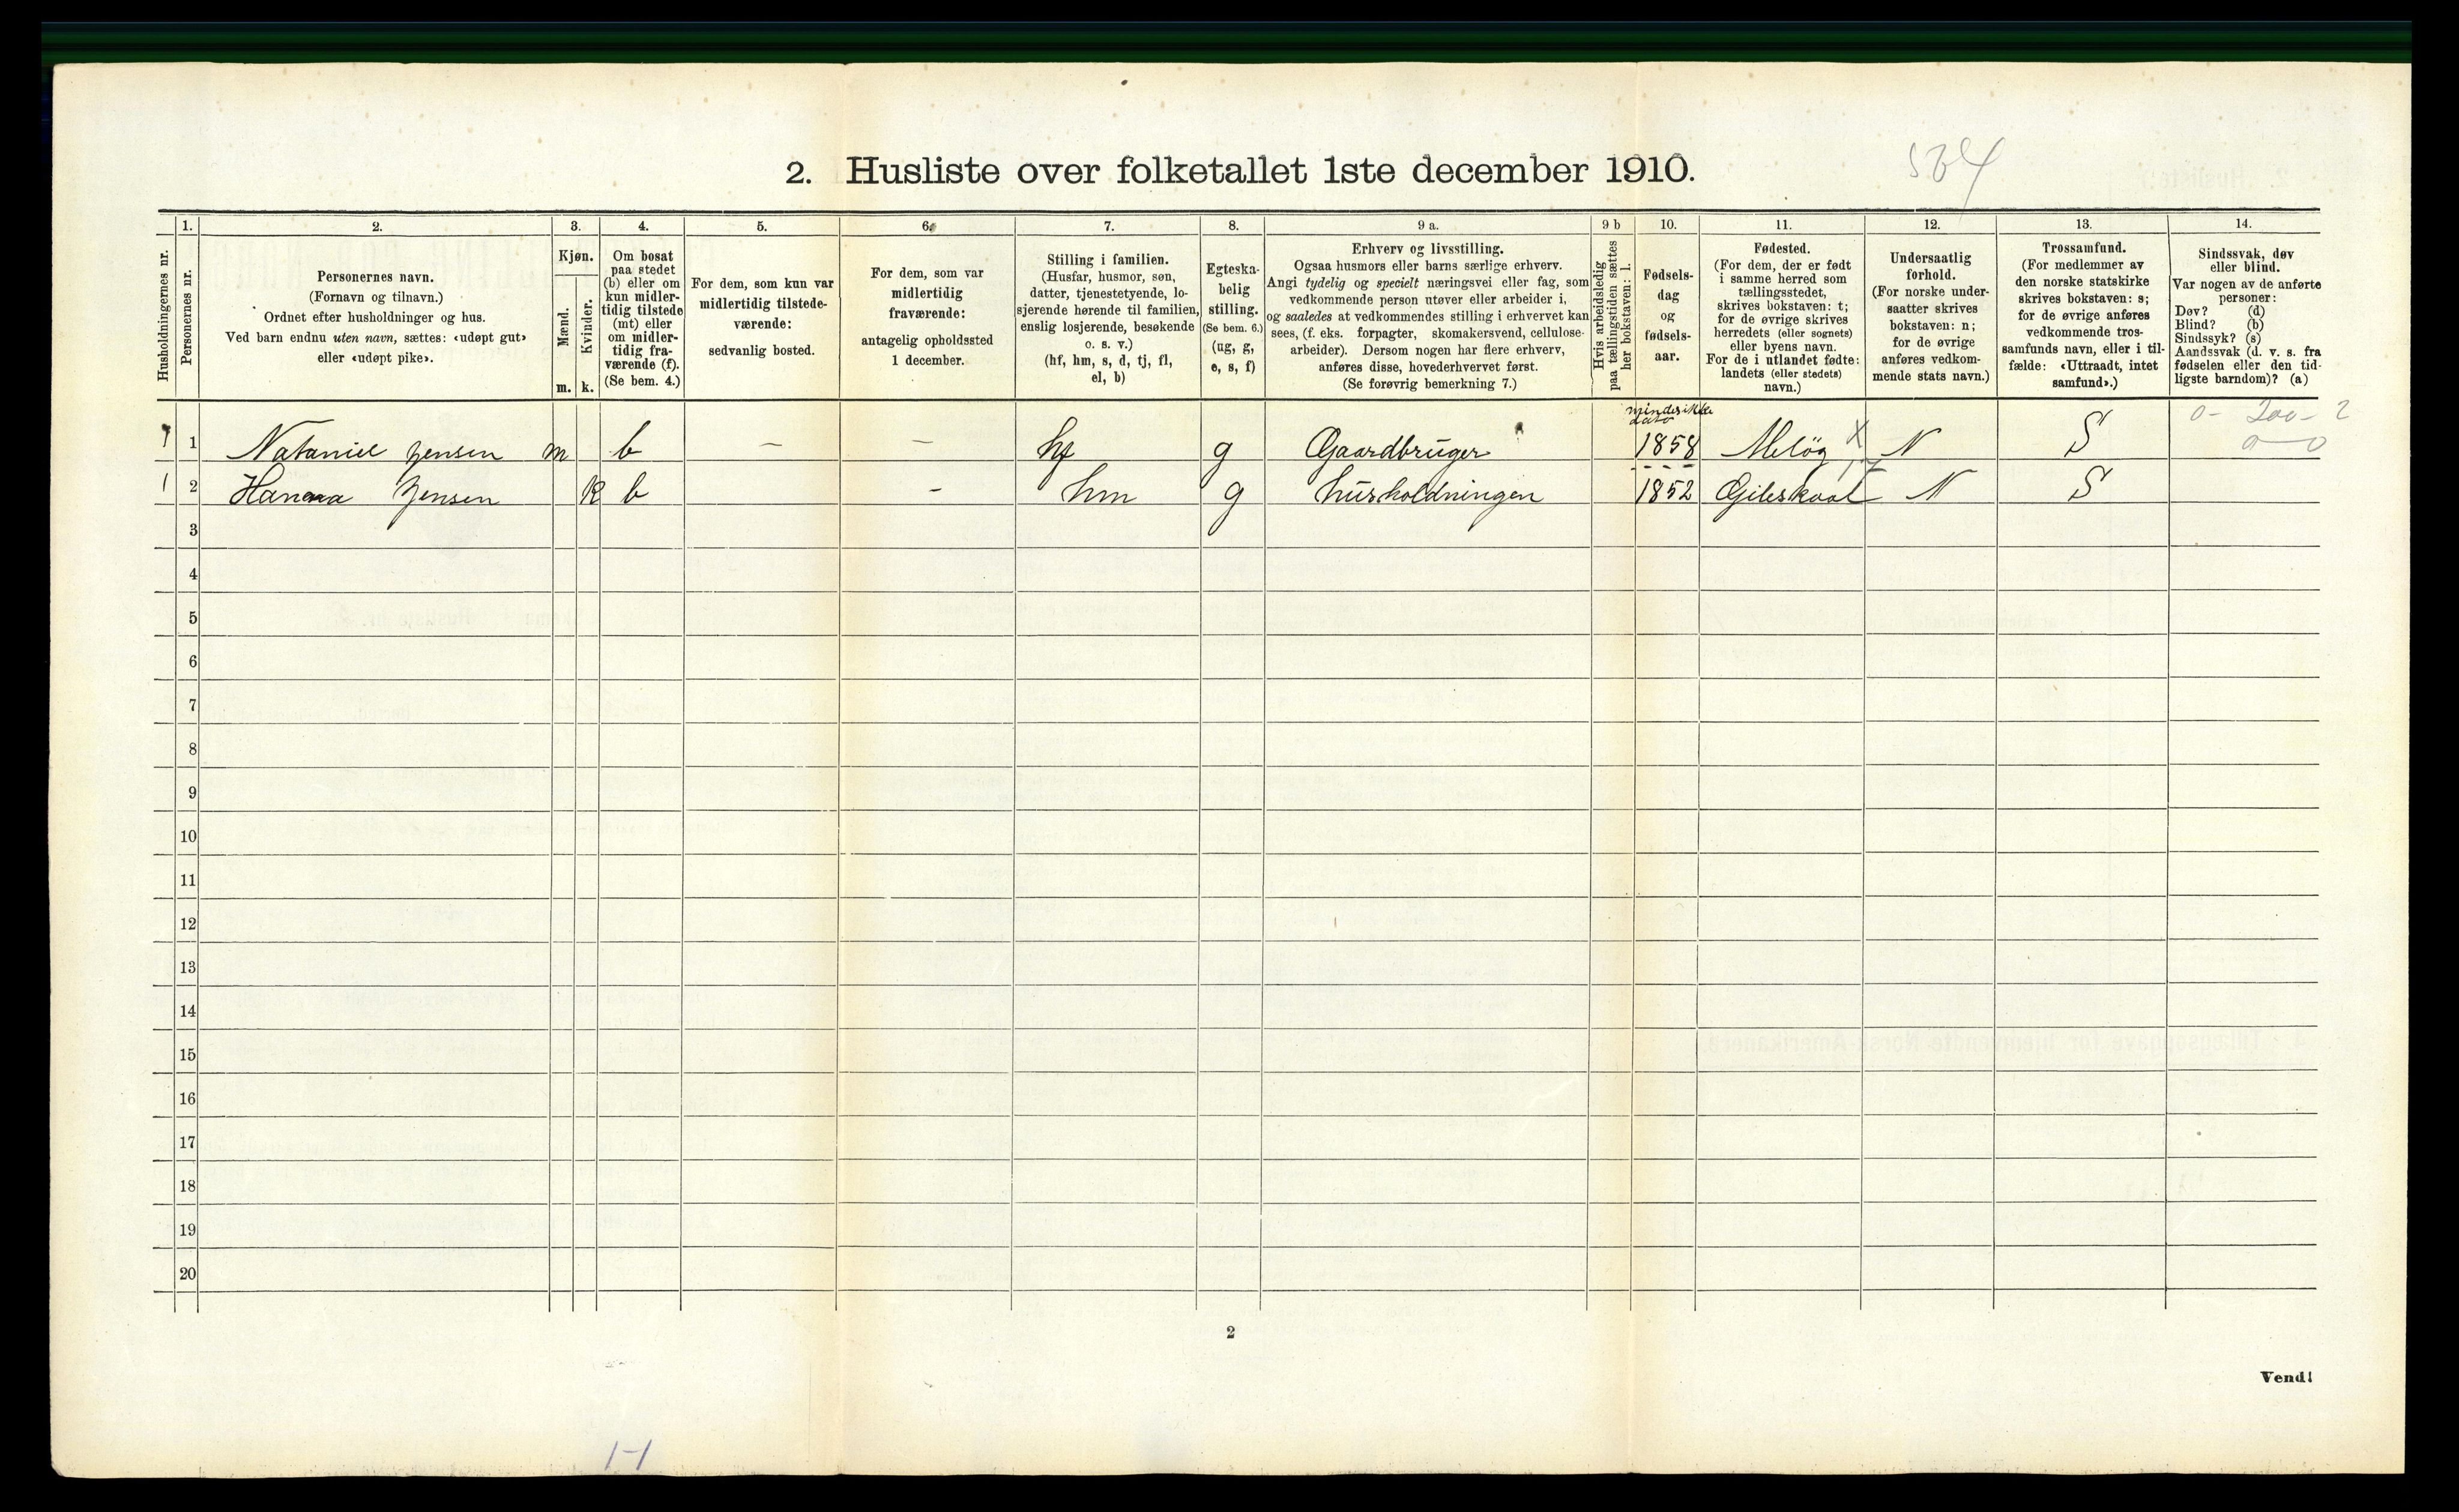 2. Husliste over folketallet 1ste december 1910.
534
Husholdningernes nr.
1.
Personernes nr.
2.
Personernes navn.
(Fornavn og tilnavn.)
Ordnet efter husholdninger og hus.
Ved barn endnu uten navn, sættes: «udøpt gut»
eller «udøpt pike».
3.
Kjøn.
Mænd.
m.
Kvinder.
k.
4.
Om bosat
paa stedet
(b) eller om
kun midler-
tidig tilstede
(mt) eller
om midler-
tidig fra-
værende (f).
(Se bem. 4.)
5.
For dem, som kun var
midlertidig tilstede-
værende:
sedvanlig bosted.
6.
For dem, som var
midlertidig
fraværende:
antagelig opholdssted
1 december.
7.
Stilling i familien.
(Husfar, husmor, søn,
datter, tjenestetyende, lo-
sjerende hørende til familien,
enslig losjerende, besøkende
o. s. v.)
(hf, hm, s, d, tj, fl,
el, b)
8.
Egteska-
belig
stilling.
(Se bem. 6.)
(ug, g,
e, s, f)
9 a.
Erhverv og livsstilling.
Ogsaa husmors eller barns særlige erhverv.
Angi tydelig og specielt næringsvei eller fag, som
vedkommende person utøver eller arbeider i,
og saaledes at vedkommendes stilling i erhvervet kan
sees, (f. eks. forpagter, skomakersvend, cellulose-
arbeider). Dersom nogen har flere erhverv,
anføres disse, hovederhvervet først.
(Se forøvrig bemerkning 7.)
9 b
Hvis arbeidsledig
paa tællingstiden sættes
her bokstaven: l.
10.
Fødsels-
dag
og
fødsels-
aar.
11.
Fødested.
(For dem, der er født
i samme herred som
tællingsstedet,
skrives bokstaven: t;
for de øvrige skrives
herredets (eller sognets)
eller byens navn.
For de i utlandet fødte:
landets (eller stedets)
navn.)
12.
Undersaatlig
forhold.
(For norske under-
saatter skrives
bokstaven: n;
for de øvrige
anføres vedkom-
mende stats navn.)
13.
Trossamfund.
(For medlemmer av
den norske statskirke
skrives bokstaven: s;
for de øvrige anføres
vedkommende tros-
samfunds navn, eller i til-
fælde: «Uttraadt, intet
samfund».)
14.
Sindssvak, døv
eller blind.
Var nogen av de anførte
personer:
Døv? (d)
Blind? (b)
Sindssyk? (s)
Aandssvak (d. v. s. fra
fødselen eller den tid-
ligste barndom)? (a)
mindes ikke
dato
0 - 200 - 2
0 — 0
1 1 Nataniel Jensen m b — — hf g Gaardbruger 1858 Meløy X N S
1 2 Hanna Jensen K b - hm g husholdningen 1852 Gileskaal N S
3
4
5
6
7
8
9
10
11
12
13
14
15
16
17
18
19
20
2
Vend!
1-1